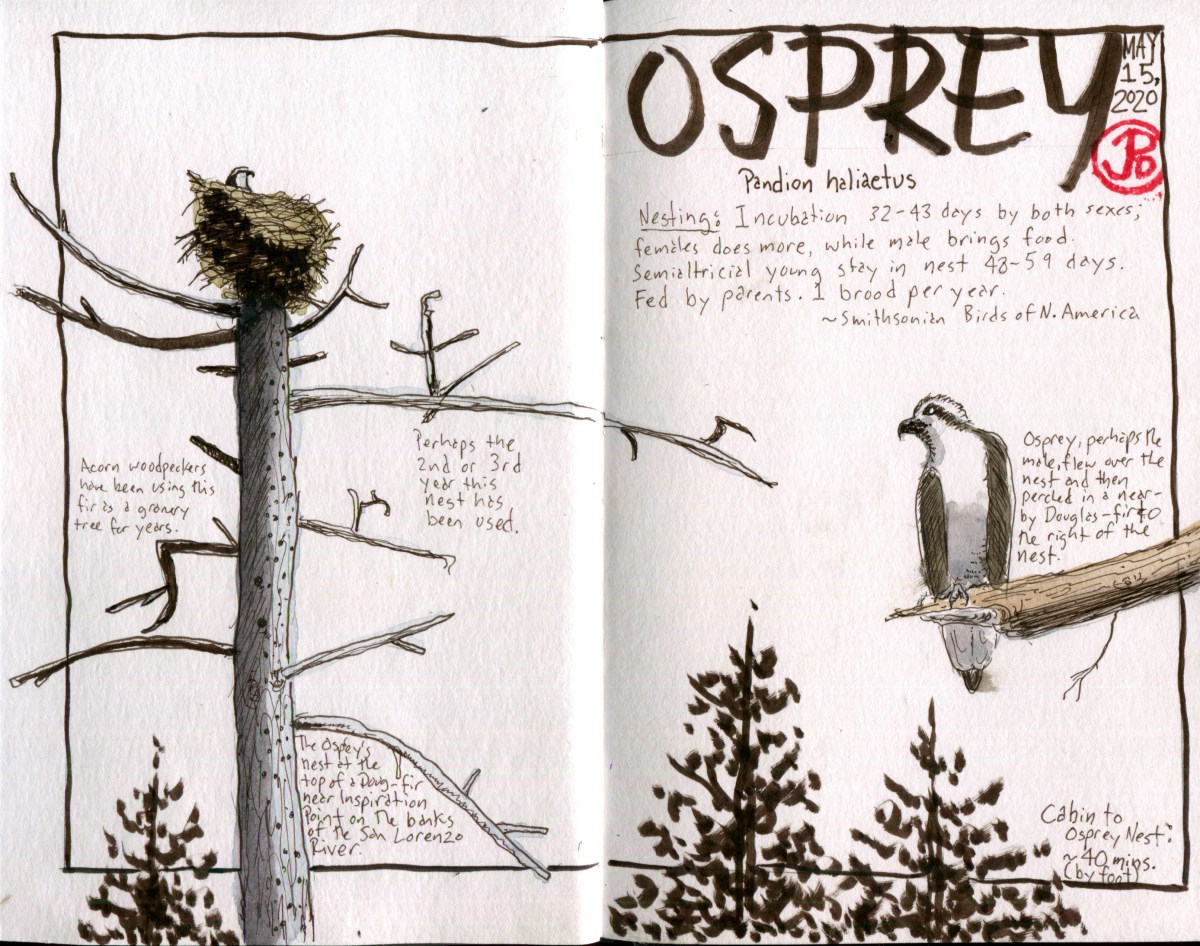 Acorn woodpeckers
have been using this
fir as a granery
tree for years.
Perhaps the
2nd or 3rd
year this
nest has
been used.
The Osprey's
nest at the
top of a Doug-fir
near Inspiration
Point on the banks
of the San Lorenzo
River.
OSPREY
MAY
15,
2020
JPD
Pandion haliaetus
Nesting: Incubation 32-43 days by both sexes;
females does more, while male brings food.
Semialtricial young stay in nest 48-59 days.
Fed by parents. 1 brood per year.
~Smithsonian Birds of N. America
Osprey, perhaps the
male, flew over the
nest and then
perched in a near-
by Douglas-fir to
the right of the
nest.
Cabin to
Osprey Nest:
~40 mins.
(by foot)